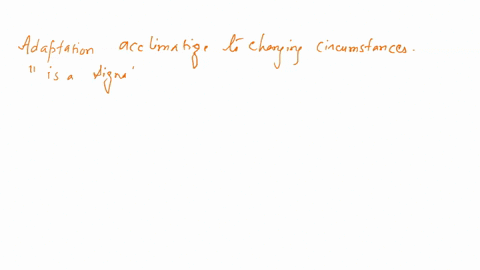 Adaptation acclimatize to changing circumstances.
" is a signa